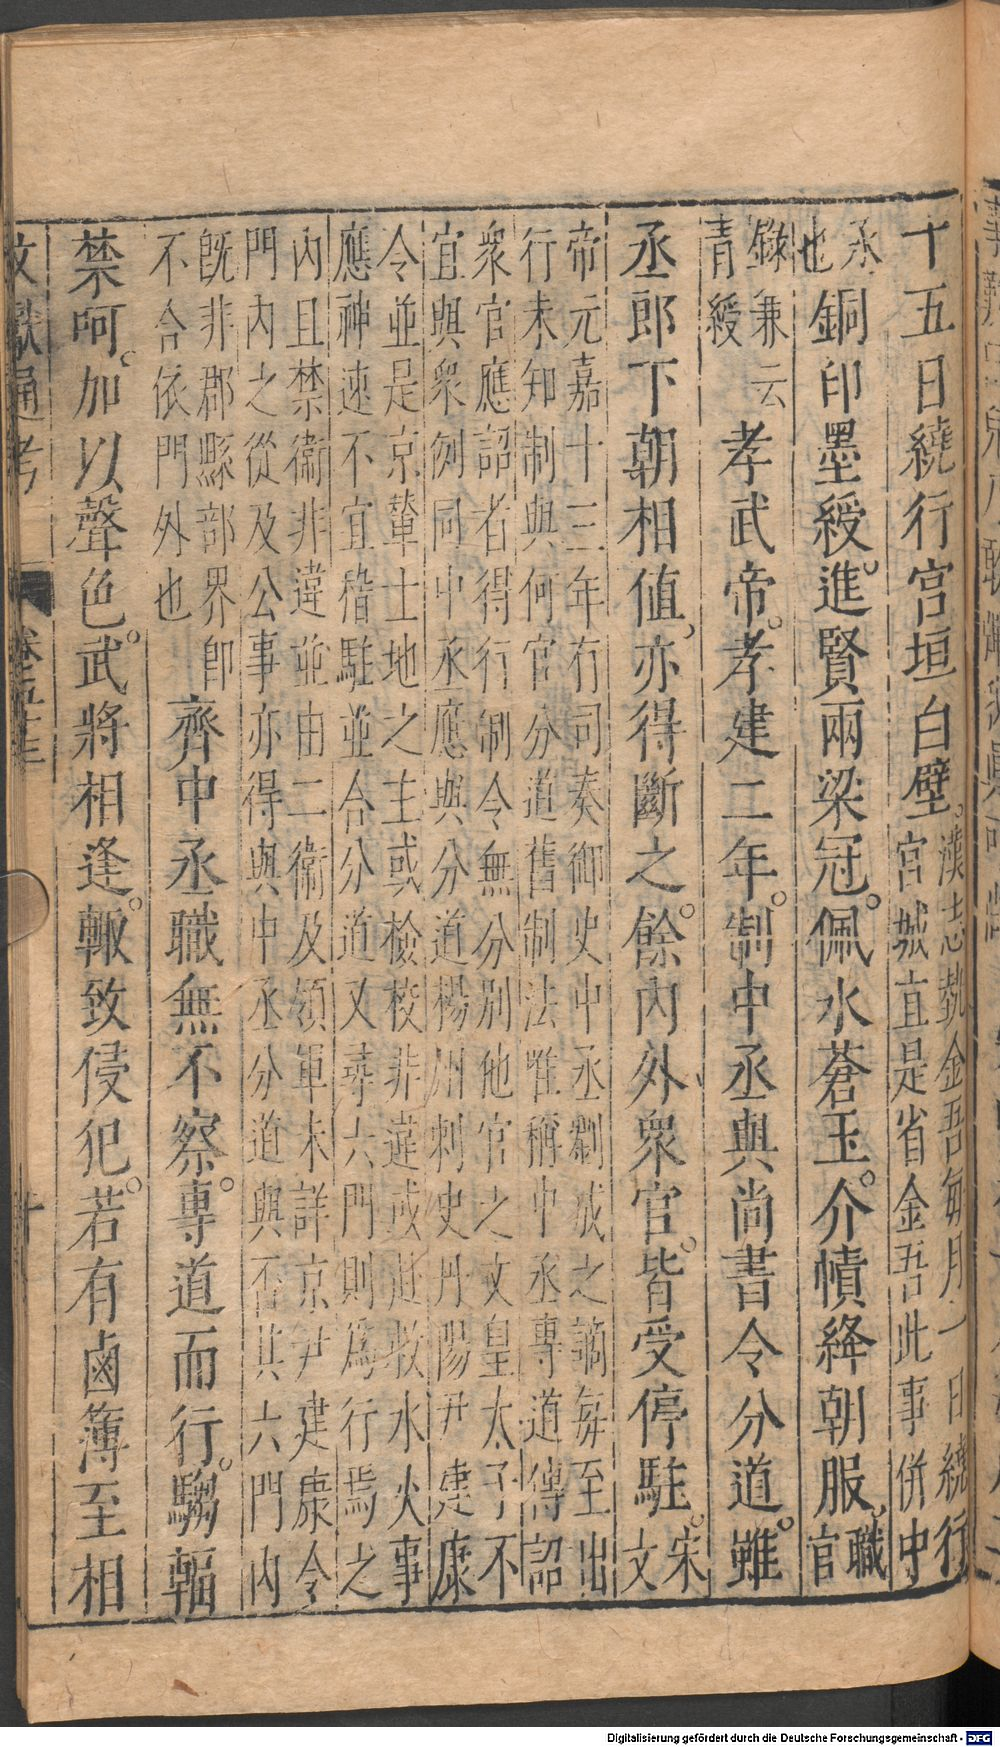 十五日繞行宮垣白壁。漢志執金吾每月一日繞行
宮城直是省金吾此事併中
丞
也銅印墨綬。進賢兩梁冠。佩水蒼玉。介幘絳朝服。職
官
錄兼云
青綬孝武帝。孝建二年。制中丞與尚書令分道。雖
丞郎下朝相值、亦得斷之。餘內外眾官。皆受停駐。宋
文
帝元嘉十三年有司奏御史中丞劉式之議每至出
行未知制與何官分道舊制法唯稱中丞專道傳詔
眾官應詔者得行制令無分別他官之文皇太子不
宜與眾例同中丞應與分道楊州刺史丹陽尹建康
令並是京輦土地之主或檢校非違或赴救水火事
應神速不宜稽駐並合分道又尋六門則為行焉之
內且禁衛非違並由二衛及領軍未詳京尹建康令
門內之從及公事亦得與中丞分道與否其六門內
既非郡縣部界卽
不合依門外也齊中丞職無不察。專道而行。騶輻
禁呵。加以聲色。武將相逢。輙致侵犯。若有鹵簿至相
文獻通考 卷五十三 十
Digitalisierung gefördert durch die Deutsche Forschungsgemeinschaft - DFG